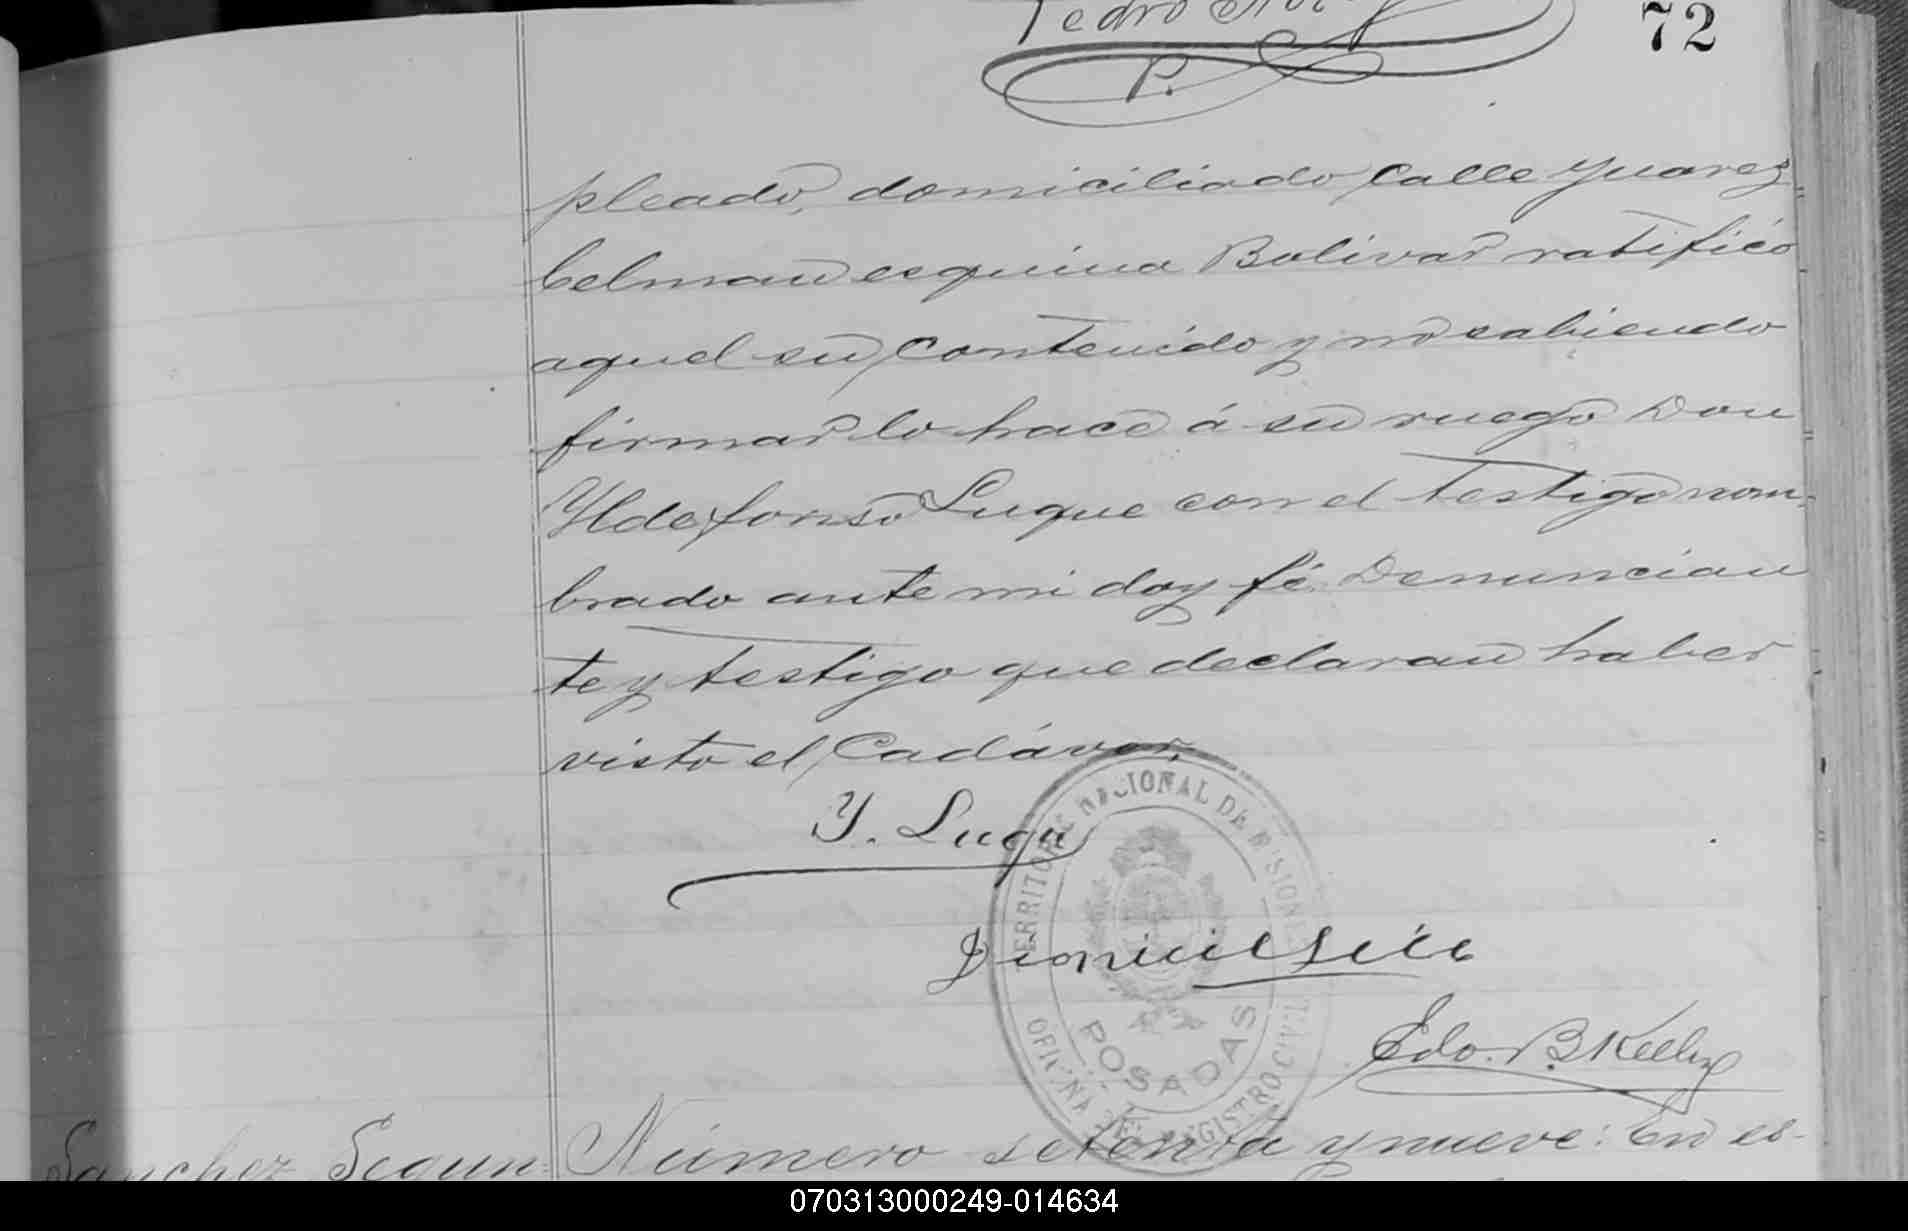 Pedro
72
P.
pleado, domiciliado Calle Yuarez
Celman esquina Bolivar ratificó
aquel su Contenido y no sabiendo
firmar lo hace á su ruego Don
Yldefonso Luque con el testigo nom-
brado ante mi doy fé. Denuncian
te y testigo que declaran haber
visto el Cadáver.
Y. Luque
TERRITORIO NACIONAL DE MISIONES
POSADAS
OFICINA DEL REGISTRO CIVIL
Edo. B. Kelly
Sanchez Segun= Número setenta y nueve: En es-
070313000249-014634